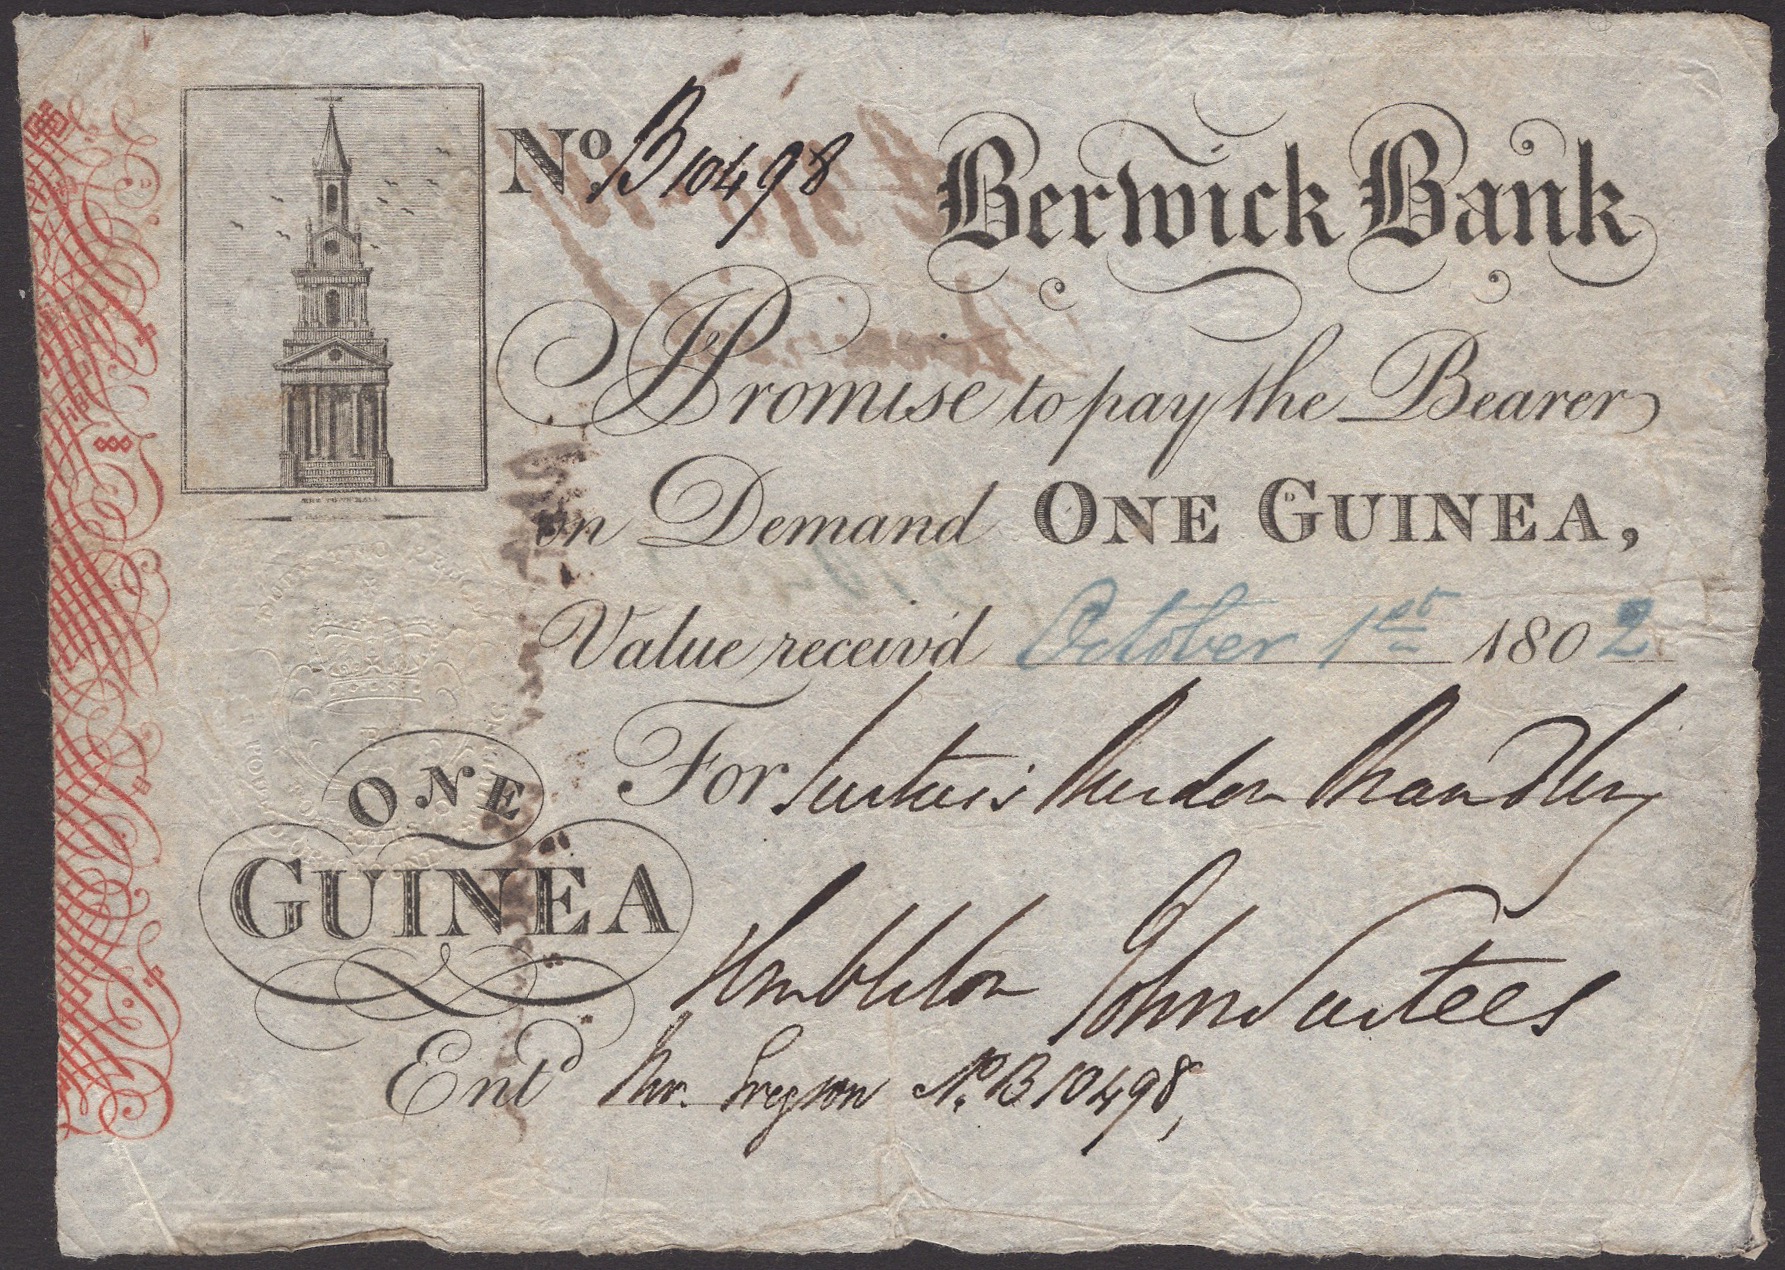 No. B10498
Berwick Bank
Promise to pay the Bearer
on Demand ONE GUINEA,
Value receiv'd October 1st 1802
THE TOWN HALL
DUTY TWO PENCE
For Surtees Burdon Brandling
Embleton John Surtees
ONE
GUINEA
Entd Thos. Gregson No. B10498,